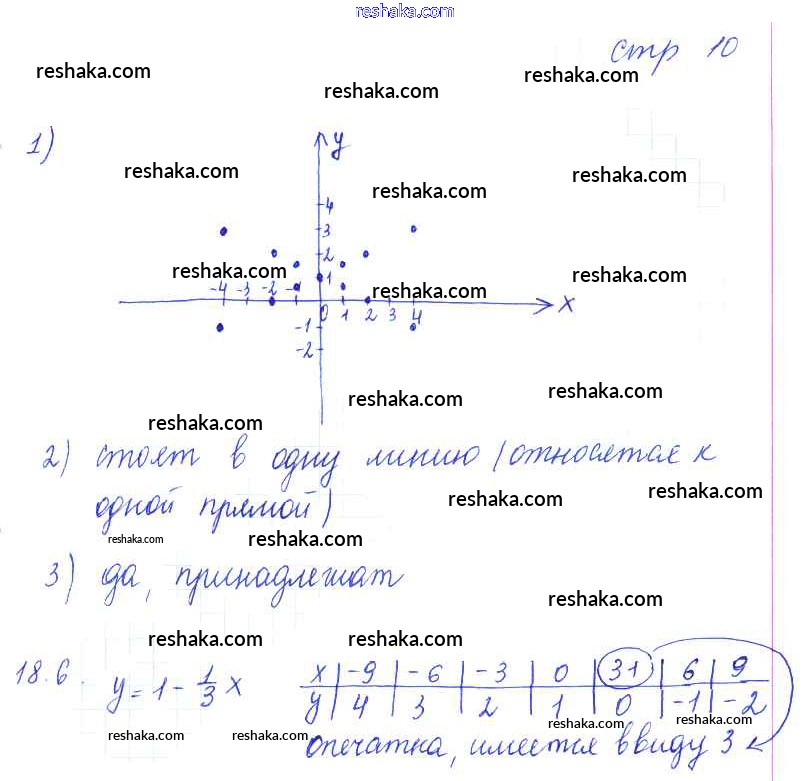 reshaka.com
стр 10
reshaka.com
reshaka.com
reshaka.com
1)
y
reshaka.com
reshaka.com
reshaka.com
4
3
2
1
reshaka.com
reshaka.com
reshaka.com
-4 -3 -2 -1
0 1 2 3 4 x
-1
-2
reshaka.com
reshaka.com
reshaka.com
2) стоят в одну линию (относятся к
reshaka.com
reshaka.com
одной прямой)
reshaka.com
reshaka.com
3) да, принадлежат
reshaka.com
reshaka.com
reshaka.com
18.6. y = 1 - 1/3 x
x | -9 | -6 | -3 | 0 | 31 | 6 | 9
y | 4 | 3 | 2 | 1 | 0 | -1 | -2
reshaka.com
reshaka.com
reshaka.com
reshaka.com
опечатка, имеется ввиду 3